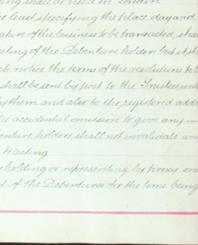 ing shall be held in London
be least specifying the place day and
ature of the business to be transacted, shall
eeting of the Debenture holders but it
ch notice the terms of the resolutions to
shall be sent by post to the Trustees
by them and also to the registered addre
he accidental omission to give any
enture holders shall not invalidate any
Meeting
holding or representing by proxy one
of the Debentures for the time being